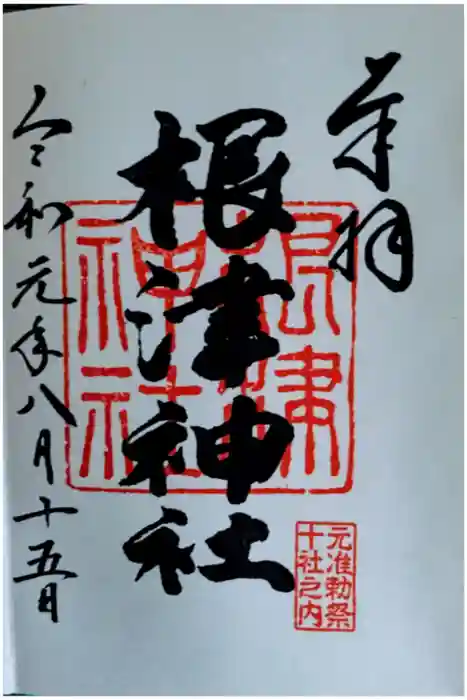 奉拝
根津神社
根津
神社
元准勅祭
十社之内
令和元年八月十五日